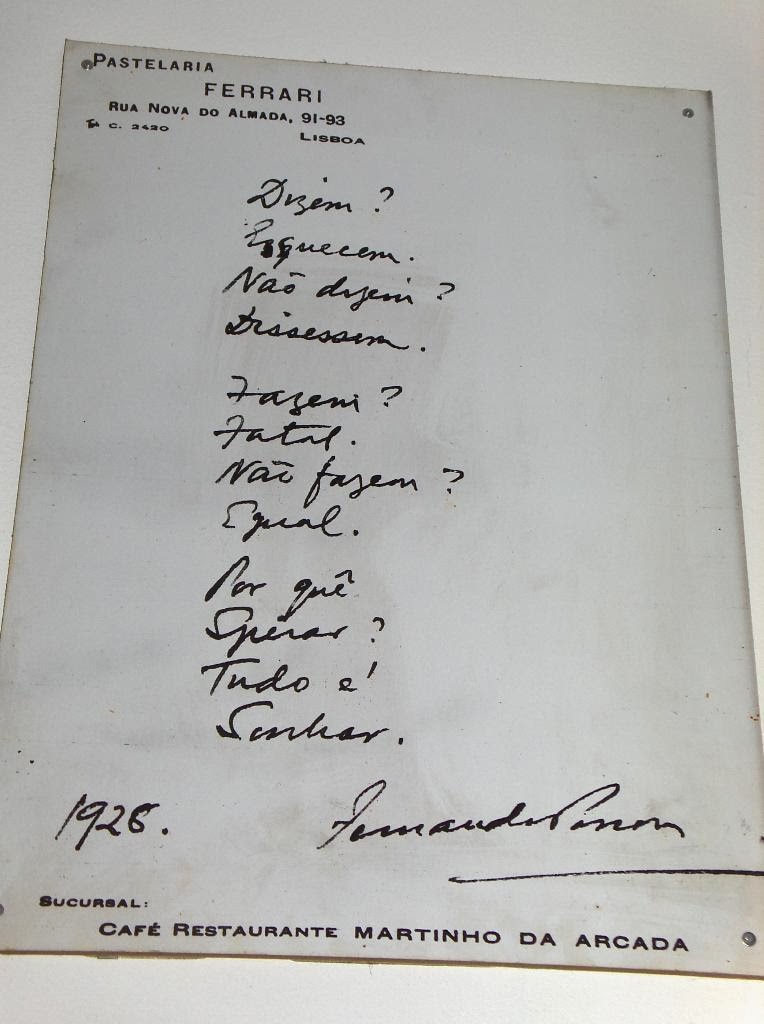 PASTELARIA
FERRARI
RUA NOVA DO ALMADA, 91-93
Tel. C. 2420
LISBOA
Dizem?
Esquecem.
Não dizem?
Dissessem.
Fazem?
Fatal.
Não fazem?
Egual.
Por quê
Sperar?
Tudo é
Sonhar.
1928.
Fernando Pessoa
SUCURSAL:
CAFÉ RESTAURANTE MARTINHO DA ARCADA